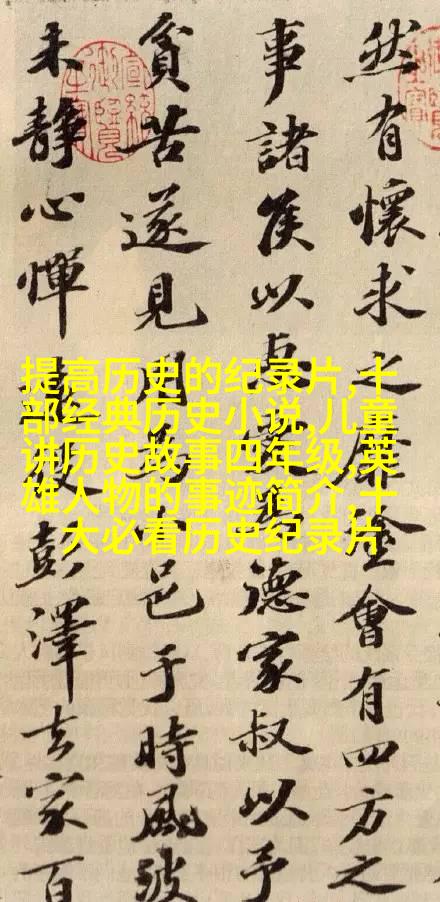 提高历史的纪录片,十
部经典历史小说,儿童
讲历史故事四年级,英
雄人物的事迹简介,十
大必看历史纪录片
然有懷求之靡途會有四方之
事諸侯以惠愛為德家叔以予
貧苦遂見用為小邑于時風波
未靜心憚遠役彭澤去家百